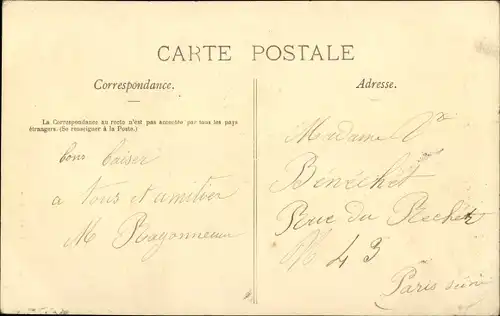 CARTE POSTALE
Correspondance.
La Correspondance au recto n'est pas acceptée par tous les pays
étrangers. (Se renseigner à la Poste.)
bons baiser
a tous et amitier
M
Adresse.
Madame Ve
Bénéchêt
Rue du
N 43
Paris